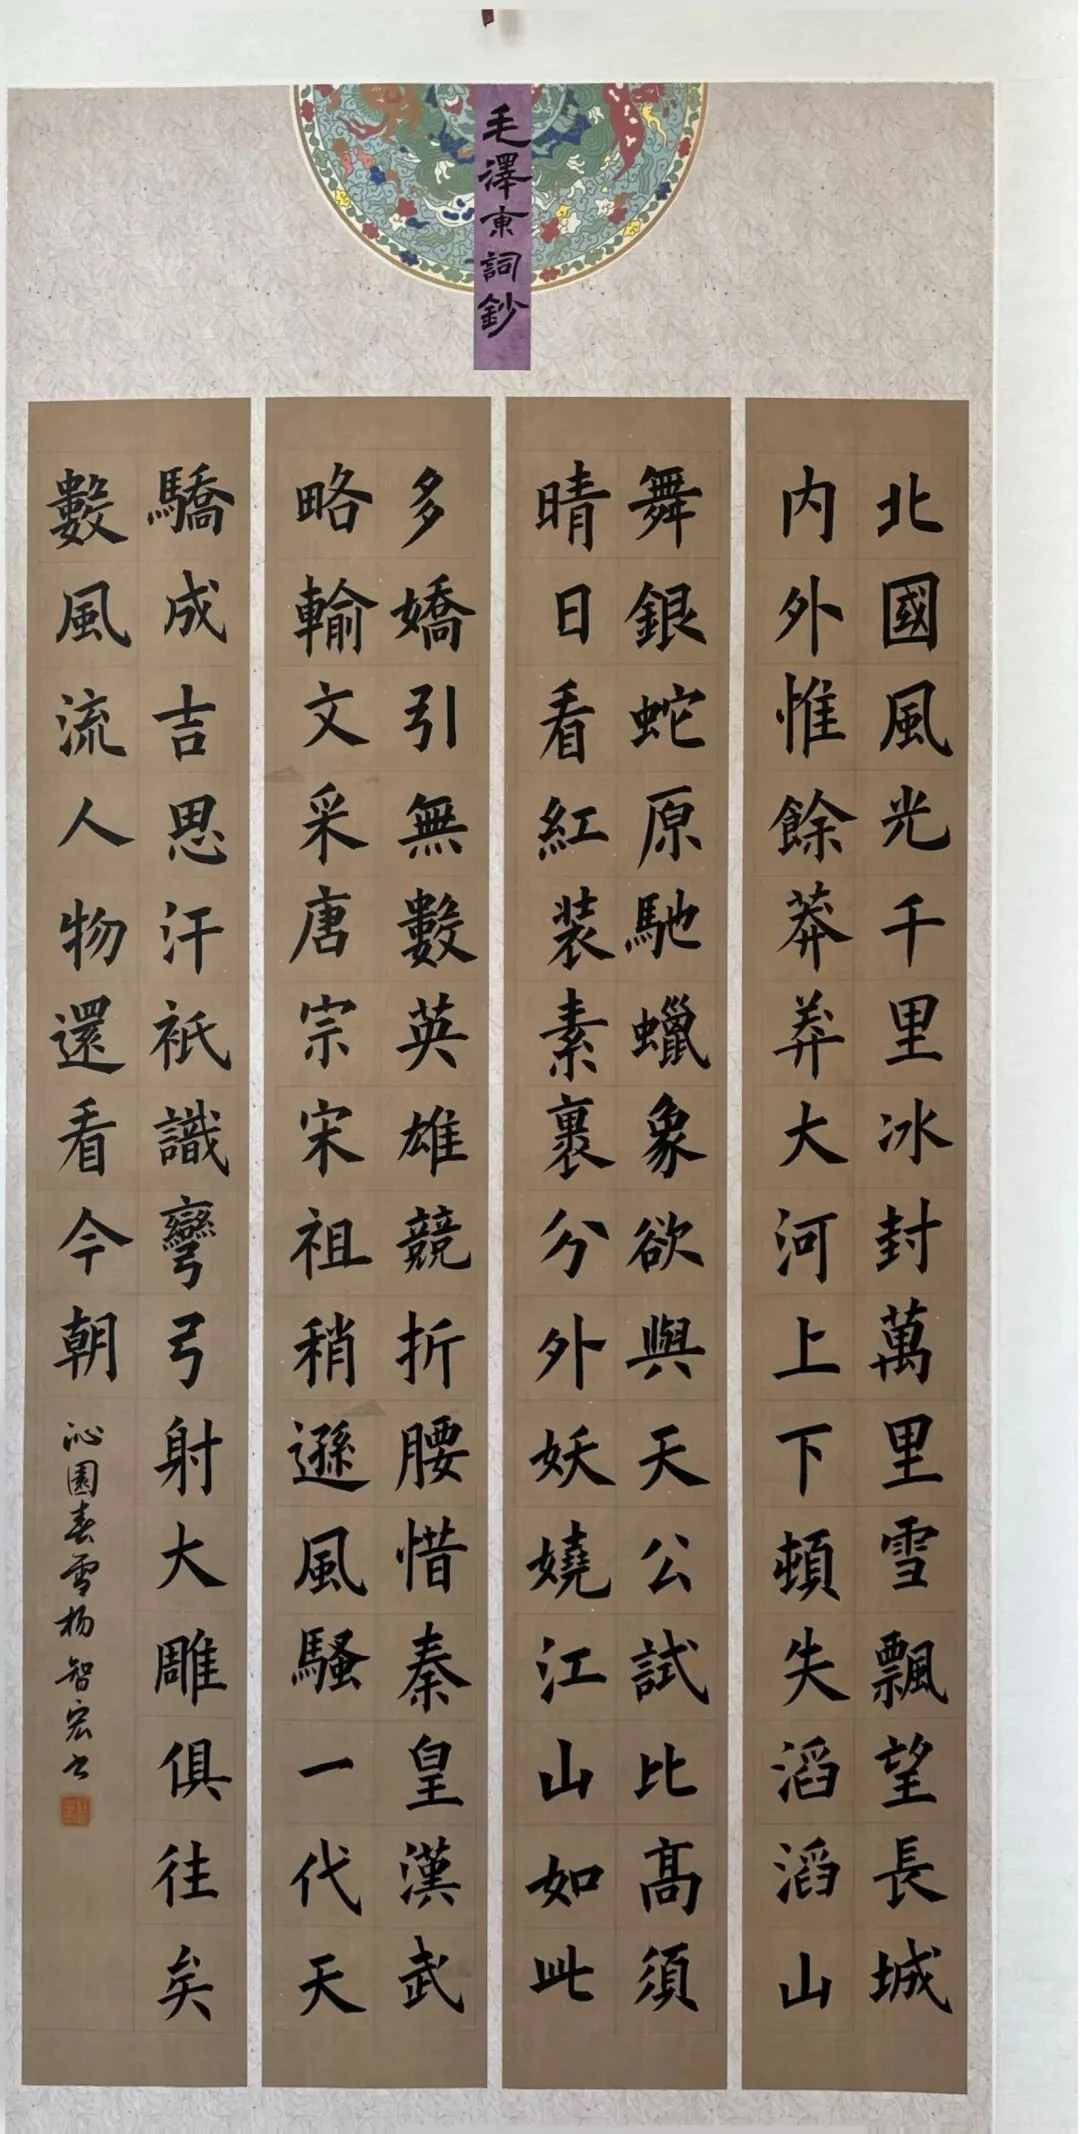 毛澤東詞鈔
北國風光千里冰封萬里雪飄望長城
内外惟餘莽莽大河上下頓失滔滔山
舞銀蛇原馳蠟象欲與天公試比高須
晴日看紅装素裹分外妖嬈江山如此
多嬌引無數英雄競折腰惜秦皇漢武
略輸文采唐宗宋祖稍遜風騷一代天
驕成吉思汗祇識彎弓射大雕俱往矣
數風流人物還看今朝
沁園春雪杨智宏书